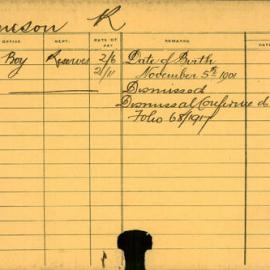 meson R
OFFICE DEPT. RATE OF PAY REMARKS DATE
Boy Reserves 2/6 Date of Birth
2/11 November 5th 1901
Dismissed
Dismissal Confirmed
Folio 68/1917